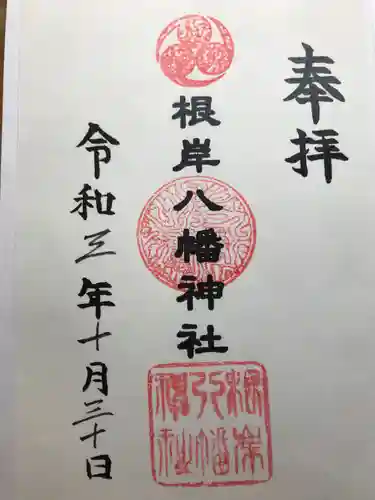 奉拝
根岸八幡神社
令和三年十月三十日